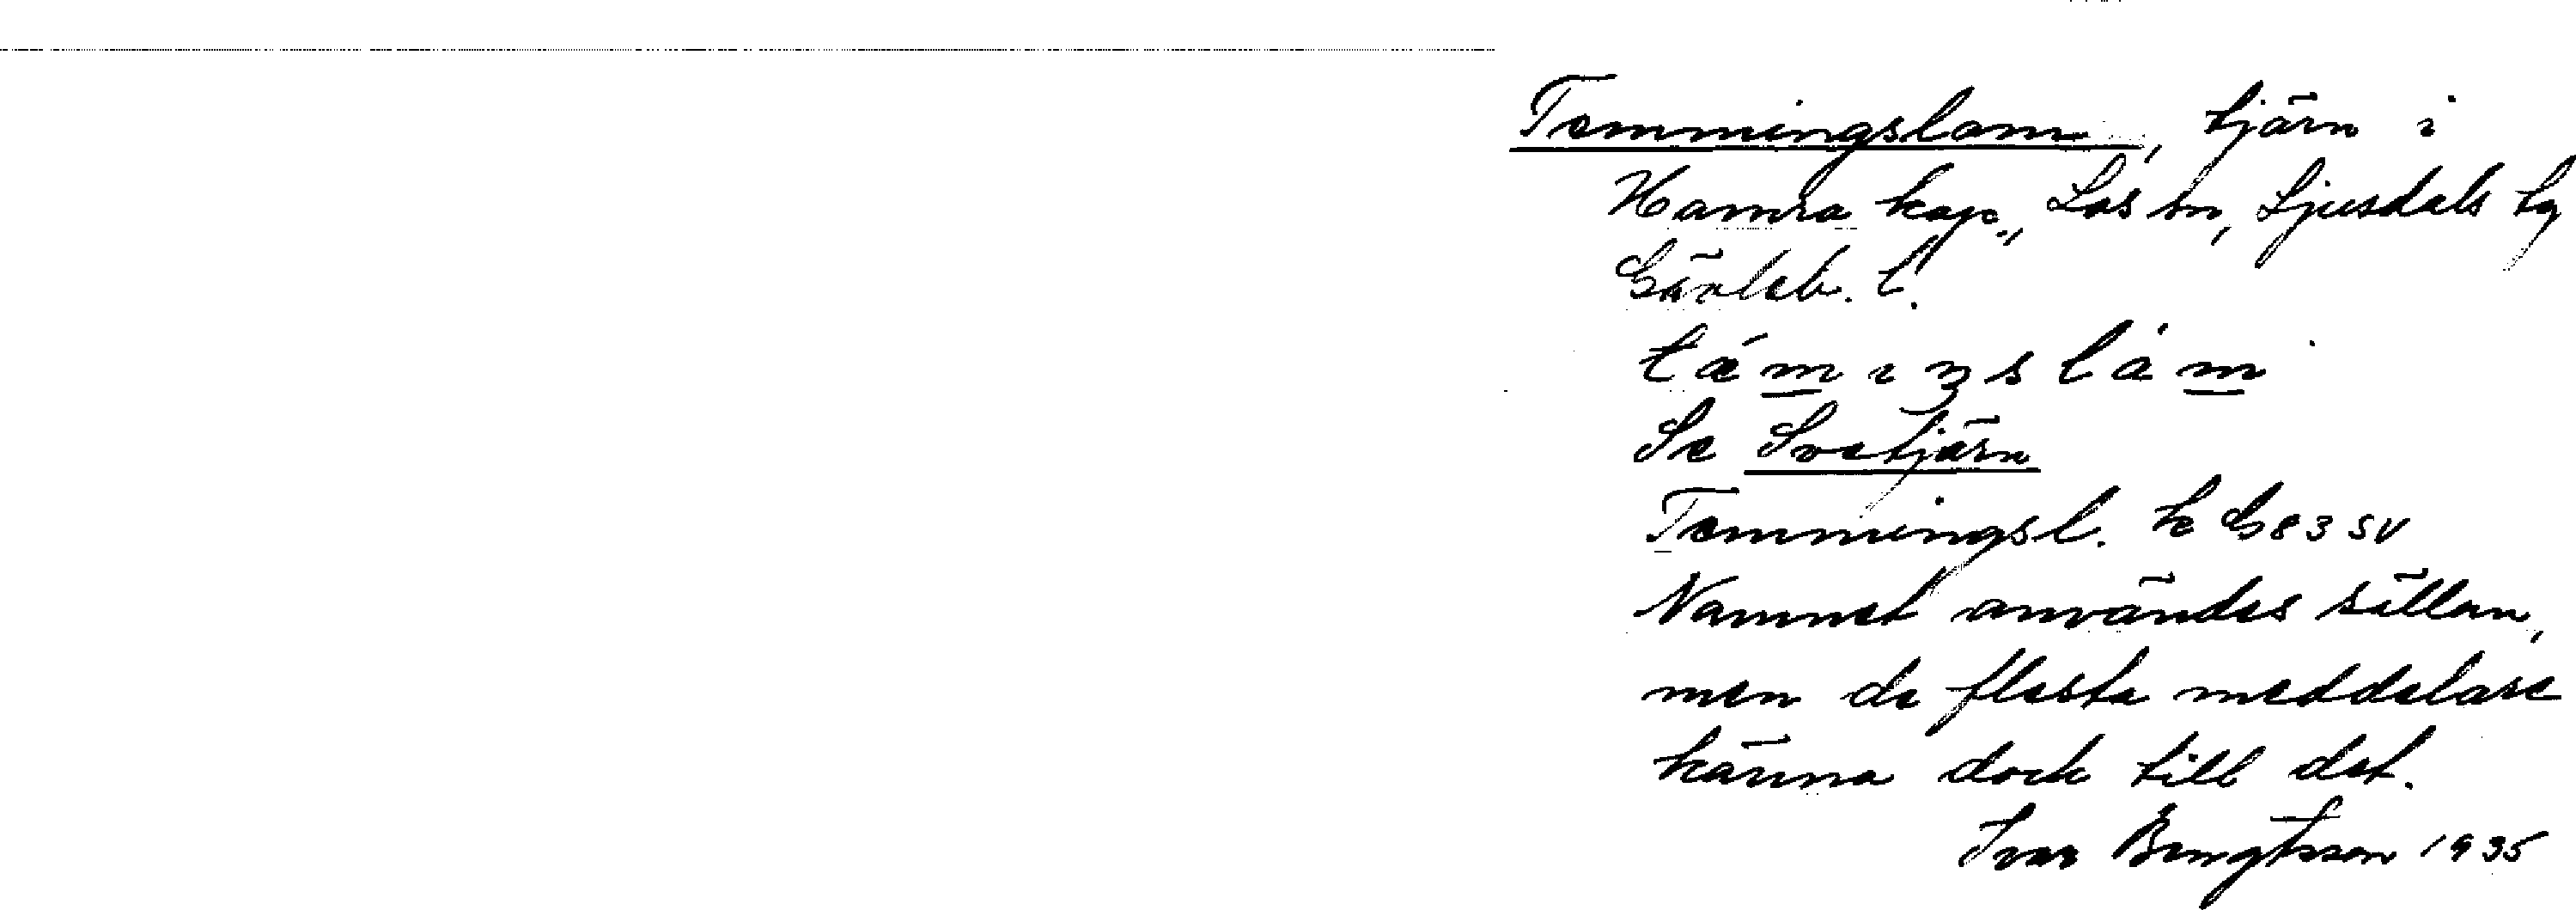 Temmingslam, tjärn i
Hamra kap., Los sn, Ljusdals tg
Gävleb. l.
Se Svetjärn
Temmingsl. k G 83 SV
Namnet användes sällan,
men de flesta meddelare
känna dock till det.
Ivar Bengtsson 1935